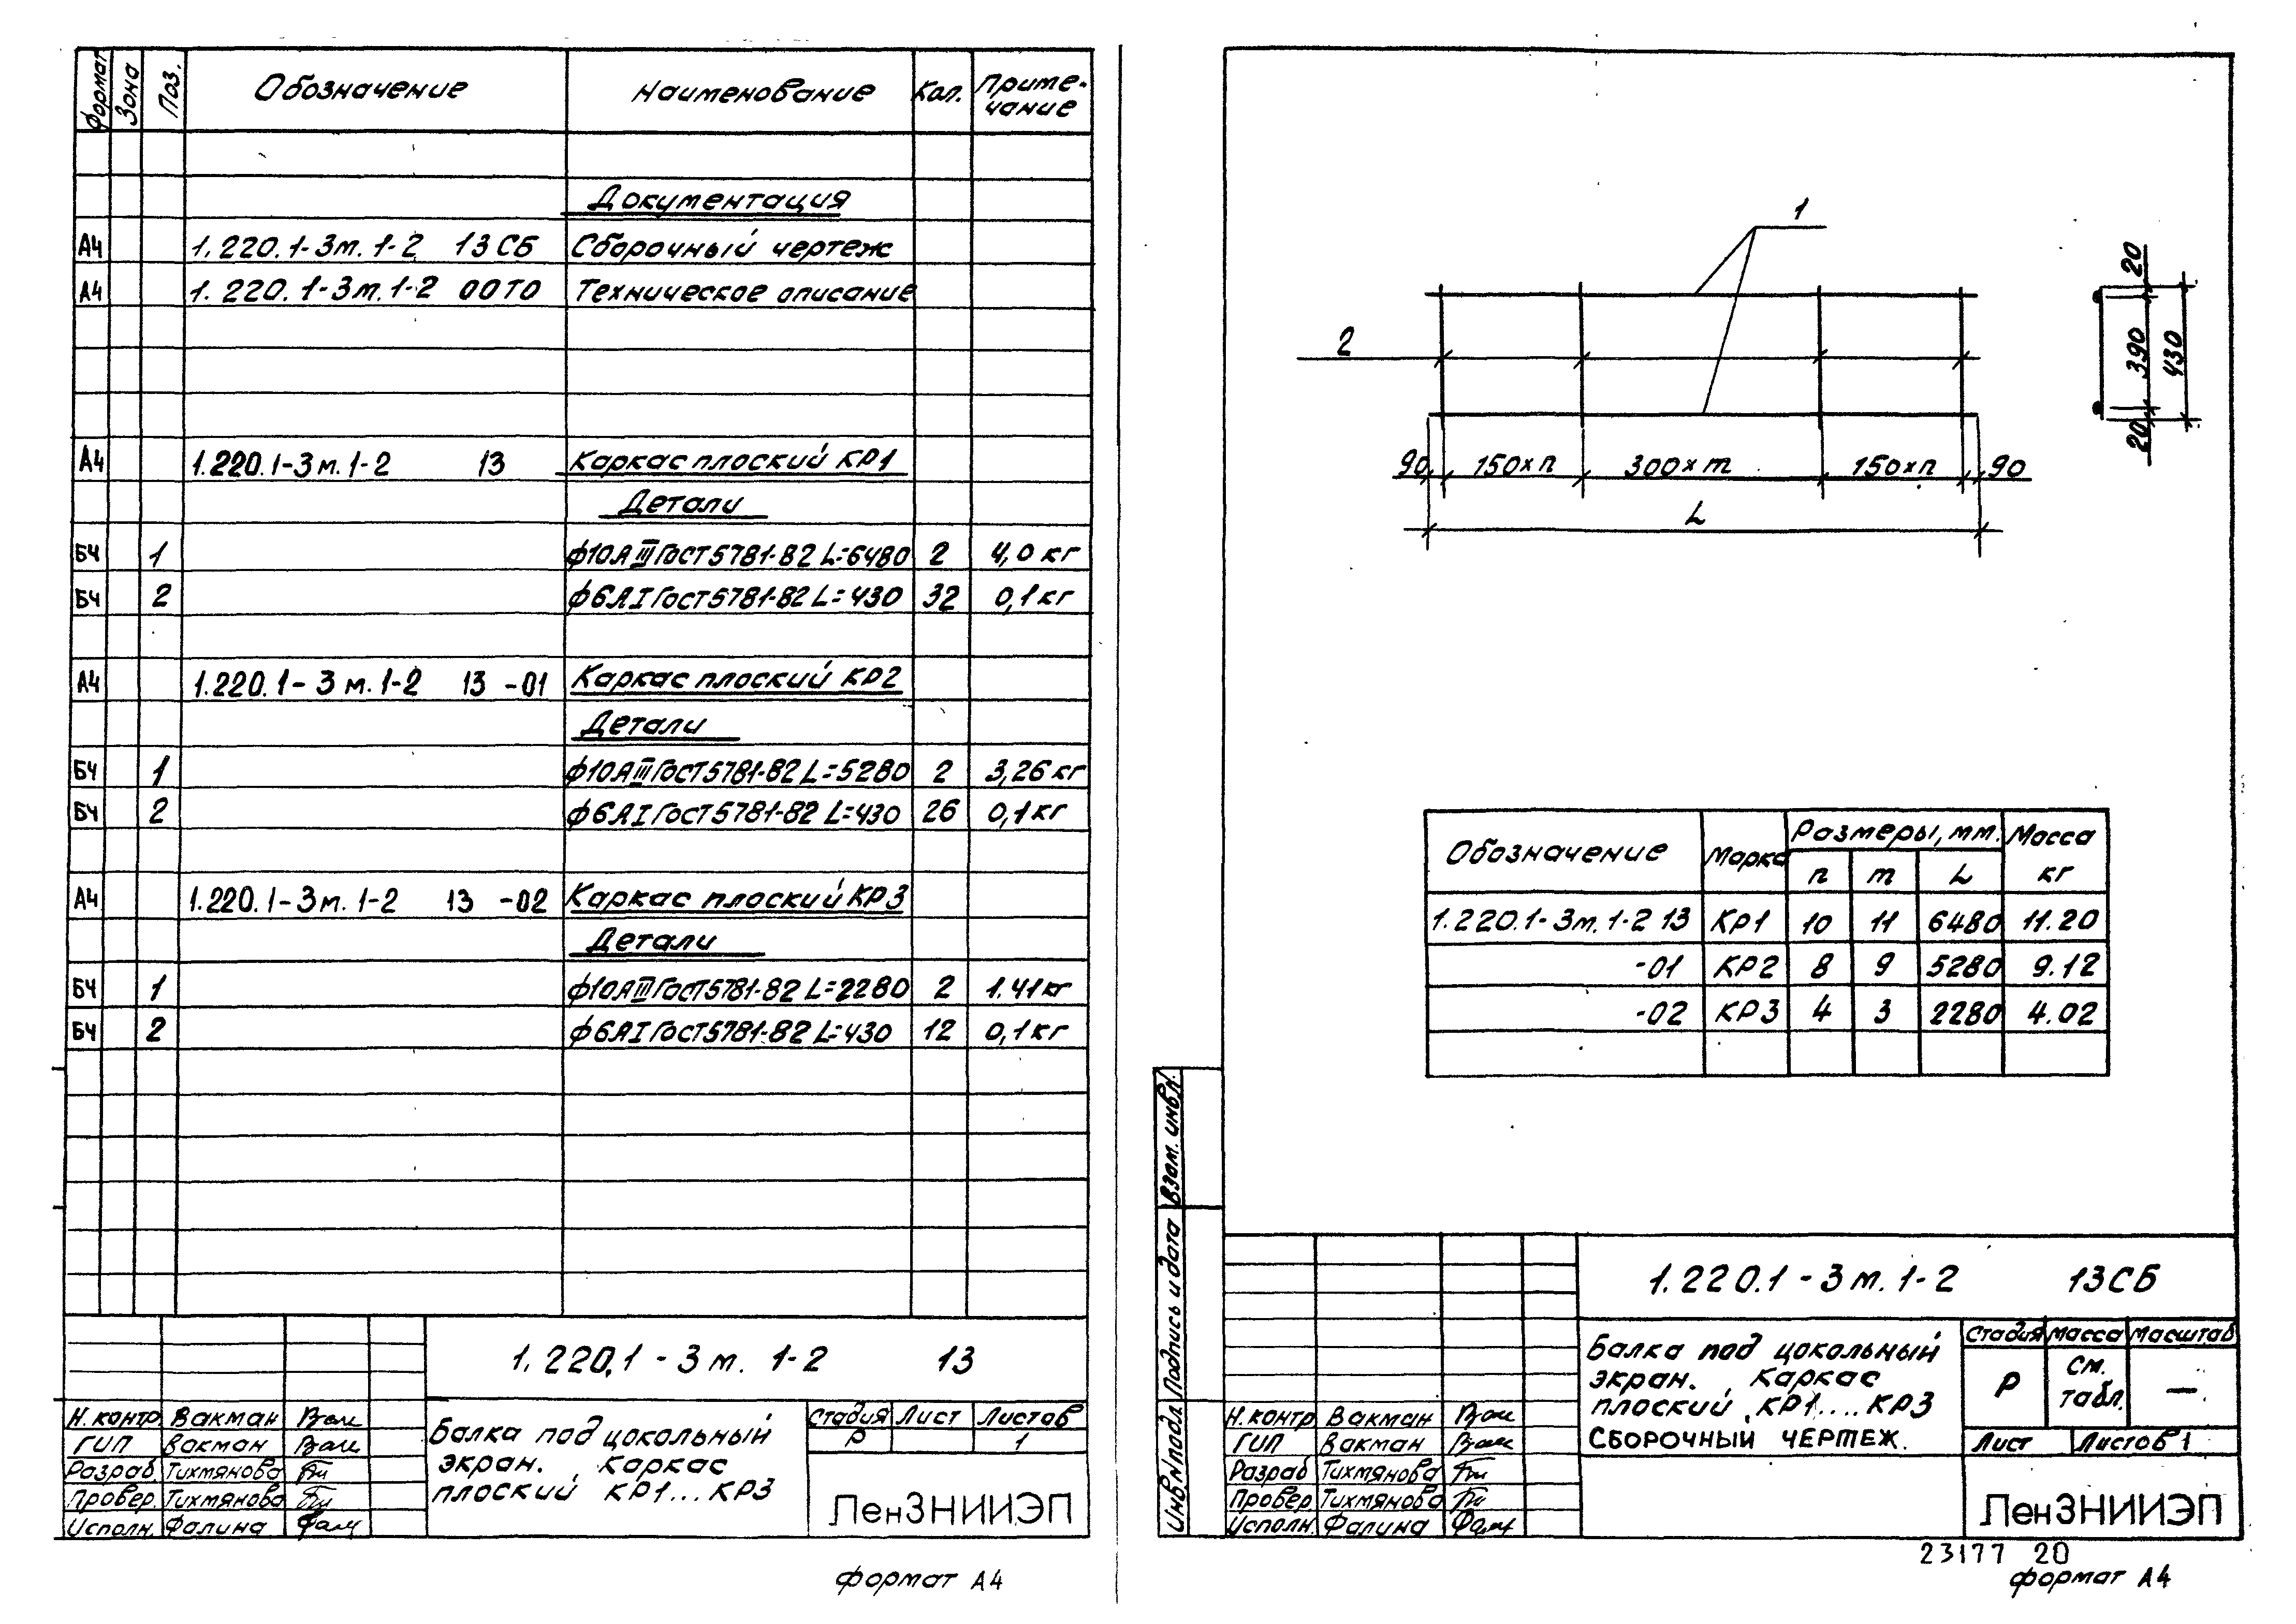 Формат Зона Поз. Обозначение Наименование Кол. Приме-
чание
Документация
А4 1.220.1-3м.1-2 13СБ Сборочный чертеж
А4 1.220.1-3м.1-2 00ТО Техническое описание
А4 1.220.1-3м.1-2 13 Каркас плоский КР1
Детали
БЧ 1 ф10АIIIГост5781-82 L=6480 2 4,0 кг
БЧ 2 ф6АIГост5781-82 L=430 32 0,1 кг
А4 1.220.1-3м.1-2 13 -01 Каркас плоский КР2
Детали
БЧ 1 ф10АIIIГост5781-82 L=5280 2 3,26 кг
БЧ 2 ф6АIГост5781-82 L=430 26 0,1 кг
А4 1.220.1-3м.1-2 13 -02 Каркас плоский КР3
Детали
БЧ 1 ф10АIIIГост5781-82 L=2280 2 1.41 кг
БЧ 2 ф6АIГост5781-82 L=430 12 0,1 кг
1.220.1-3м. 1-2 13
Н.контр Вакман
ГИП Вакман
Разраб. Тихмянова
Провер. Тихмянова
Исполн. Фалина
Балка под цокольный
экран. Каркас
плоский КР1...КР3
Стадия Лист Листов
Р 1
ЛенЗНИИЭП
формат А4
1
2
90 150×n 300×m 150×n 90
L
20
390
430
20
Обозначение Марка Размеры, мм. Масса
кг
n m L
1.220.1-3м.1-2 13 КР1 10 11 6480 11.20
-01 КР2 8 9 5280 9.12
-02 КР3 4 3 2280 4.02
Взам. инв.№
Подпись и дата
Инв.№подл.
1.220.1-3м.1-2 13СБ
Н.контр Вакман
ГИП Вакман
Разраб Тихмянова
Провер Тихмянова
Исполн. Фалина
Балка под цокольный
экран. Каркас
плоский КР1....КР3
СБОРОЧНЫЙ ЧЕРТЕЖ.
Стадия Масса Масштаб
Р См.
табл. —
Лист Листов 1
ЛенЗНИИЭП
23177 20
формат А4